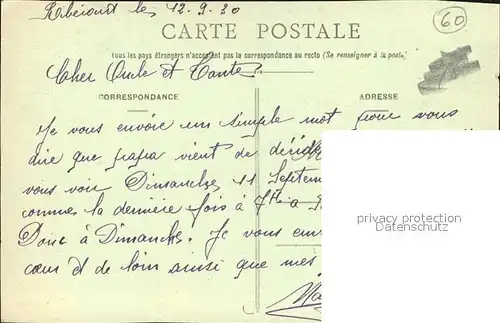 Ribérout les 12.9.30
60
CARTE POSTALE
Tous les pays étrangers n'acceptent pas la correspondance au recto (Se renseigner à la poste)
Cher Oncle et Tante
CORRESPONDANCE
ADRESSE
Je vous envoie un simple mot pour vous
dire que papa vient de décide
vous voir Dimanche 11 Septem
comme la dernière fois à 7h
Donc à Dimanche. Je vous em
cœur et de loin ainsi que mes
privacy protection
Datenschutz